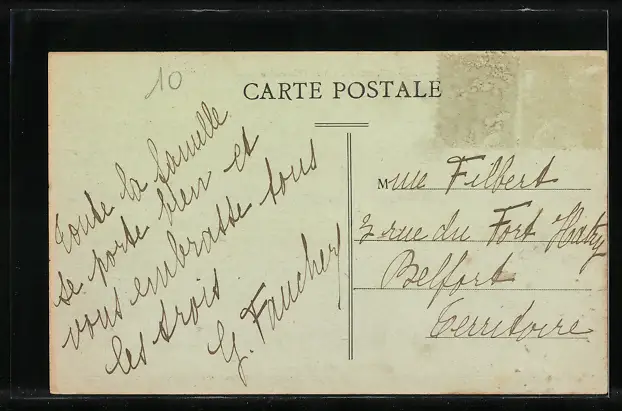 10
CARTE POSTALE
Toute la famille
se porte bien et
vous embrasse tous
les trois
G. Faucher
Mme Filbert
3 rue du Fort Hatry
Belfort
Territoire